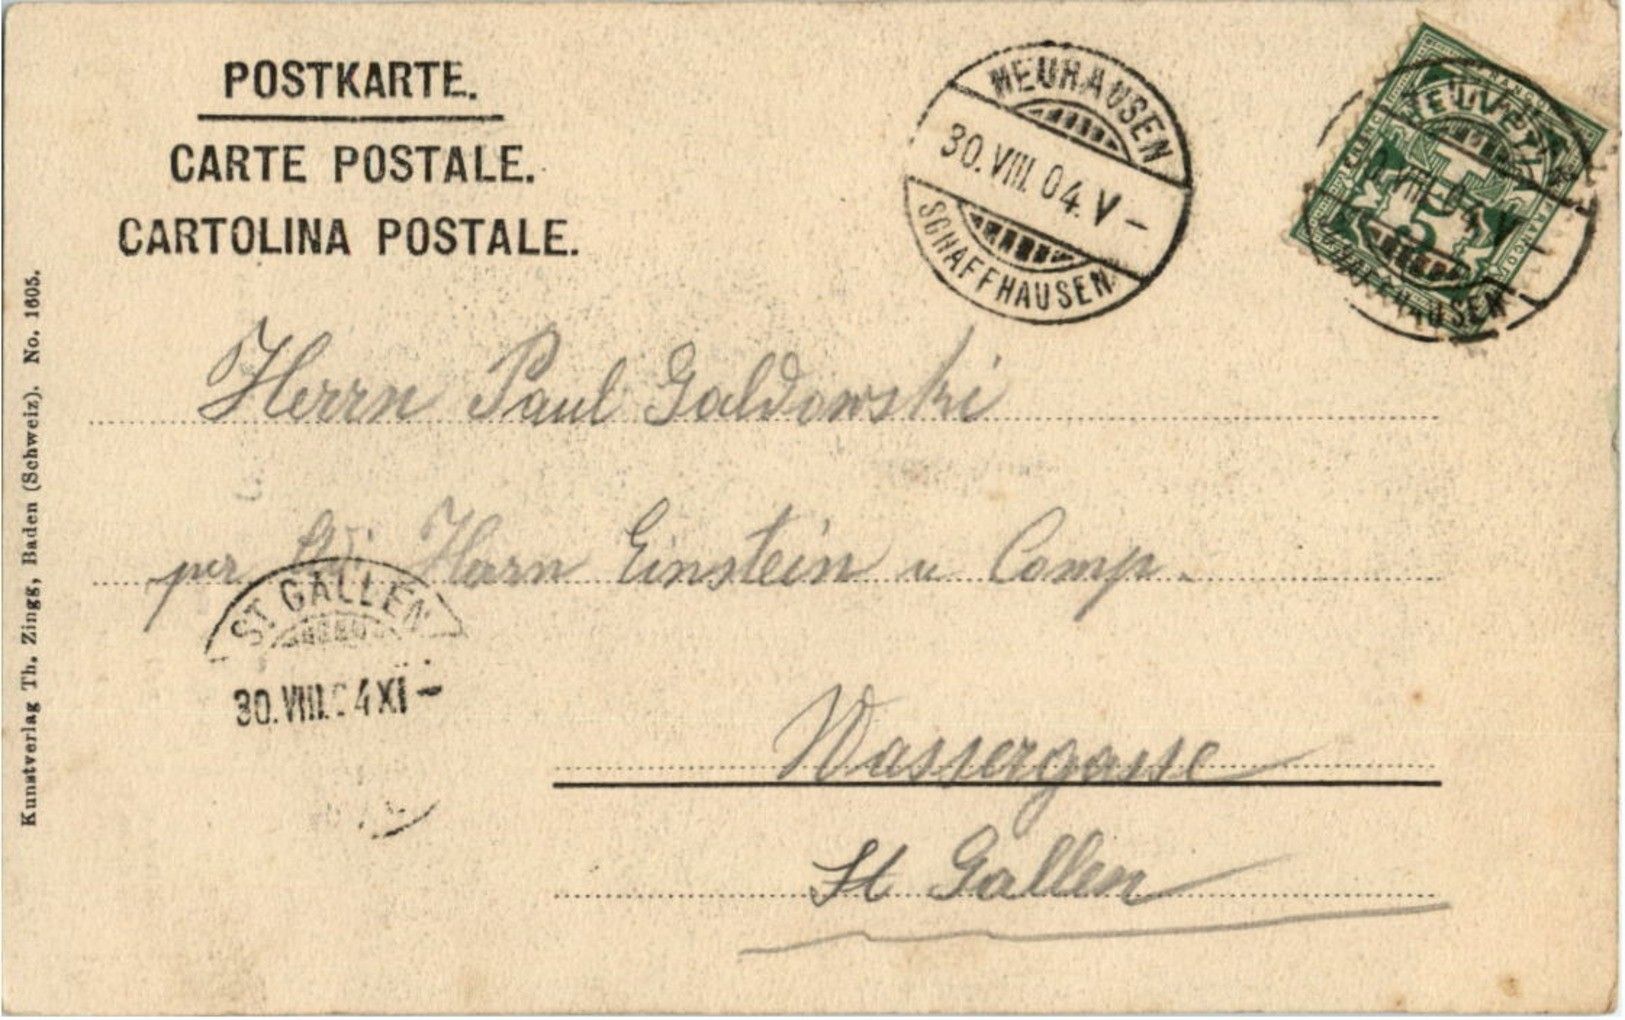 POSTKARTE.
CARTE POSTALE.
CARTOLINA POSTALE.
NEUHAUSEN
30.VIII.04.V–
SCHAFFHAUSEN
HELVETIA
FRANCO
5
VIII.04.V
SCHAFFHAUSEN
Kunstverlag Th. Zingg, Baden (Schweiz). No. 1605.
Herrn Paul Galdowski
per Herrn Einstein u Comp.
ST. GALLEN
30.VIII.04 XI–
Wassergasse
St Gallen